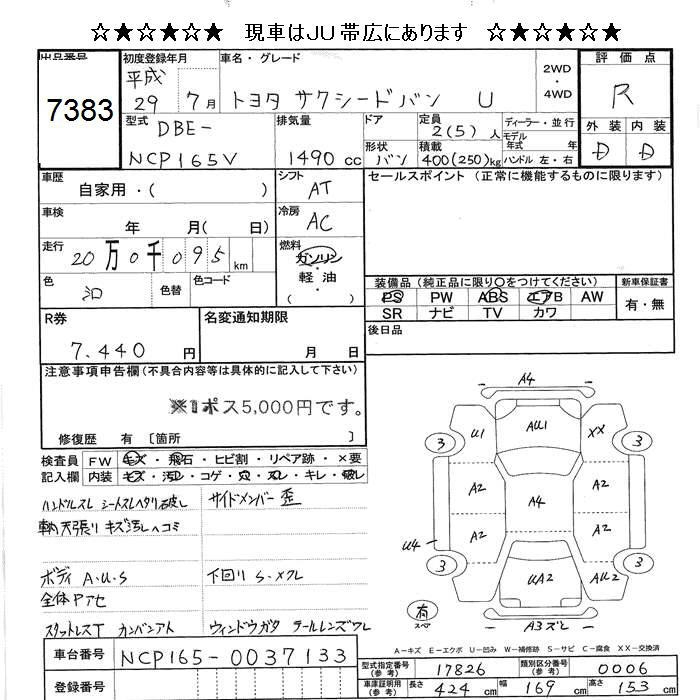 ☆★☆★☆★☆ 現車はJU帯広にあります ☆★☆★☆★☆
出品番号
7383
初度登録年月
平成
29 7月
車名・グレード
トヨタ サクシードバン U
2WD
・
4WD
評価点
R
外装 内装
D D
型式
DBE-
NCP165V
排気量
1490 cc
ドア
形状
バン
定員
2(5)人
積載
400(250)kg
ディーラー・並行
モデル
年式 年
ハンドル 左・右
車歴
自家用・( )
シフト
AT
セールスポイント(正常に機能するものに限ります)
車検
年 月( 日)
冷房
AC
走行
20万0千095 km
燃料
ガソリン
・
軽油
・
( )
色
シロ
色替
色コード
装備品(純正品に限り○をつけてください)
PS PW ABS エアB AW
SR ナビ TV カワ
新車保証書
有・無
R券
7,440 円
名変通知期限
月 日
後日品
注意事項申告欄(不具合内容等は具体的に記入して下さい)
※1ポス5,000円です。
修復歴 有 〔箇所 〕
検査員
記入欄
FW キズ・飛石・ヒビ割・リペア跡・×要
内装 キズ・汚レ・コゲ・穴・スレ・キレ・破レ
ハンドルスレ シートスレヘタリ破レ
天張り キズ汚レヘコミ
サイドメンバー歪
ボディ A.U.S
全体Pアセ
下回り S.メクレ
スタットレスT カンバンアト
ウィンドウガタ テールレンズワレ
A4
U1
AU1
XX
3
3
A2
A4
A2
A2
A2
U4
3
3
UA2
AU2
有
スペア
A3ズレ
A-キズ E-エクボ U-凹み W-補修跡 S-サビ C-腐食 XX-交換済
車台番号
NCP165-0037133
登録番号
型式指定番号
(参考)
17826
類別区分番号
(参考)
0006
車庫証明用
(参考)
長さ 424 cm 幅 169 cm 高さ 153 cm